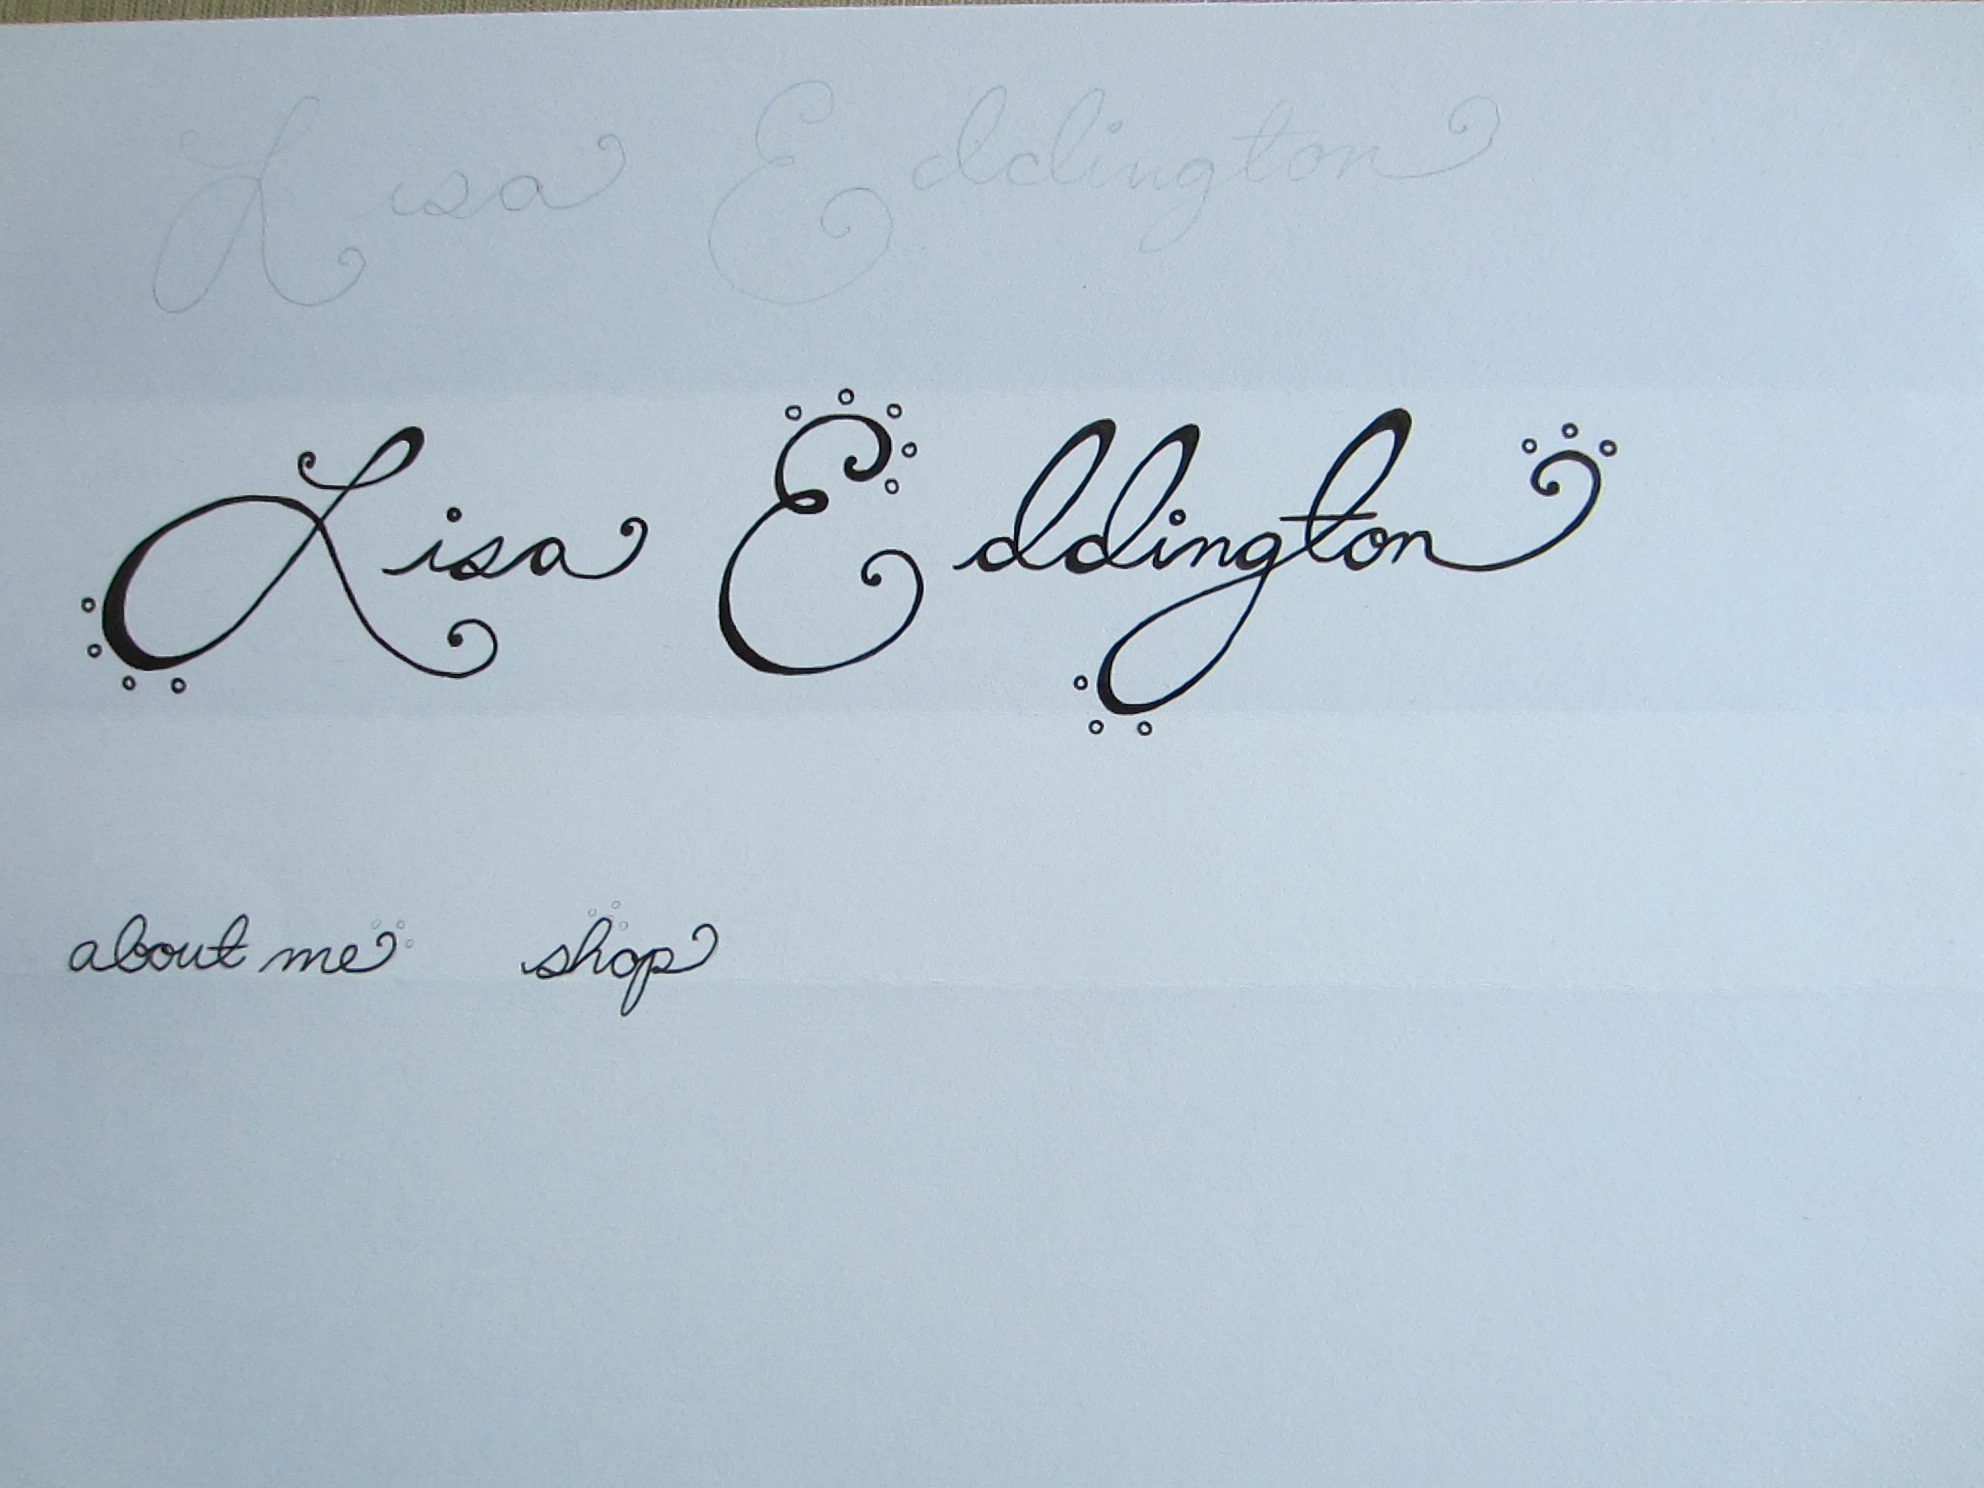 Lisa Eddington
Lisa Eddington
about me shop